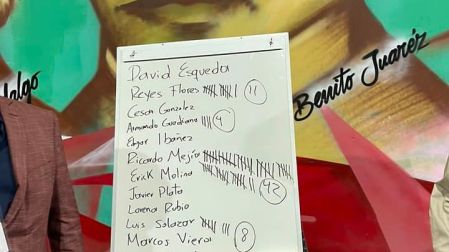 dalgo
Benito Juárez
David Esqueda
Reyes Flores 11
Cesar Gonzalez
Armando Guadiana 4
Edgar Ibañez
Ricardo Mejía
Erick Molina 42
Javier Plata
Lorena Rubio
Luis Salazar 8
Marcos Vieral